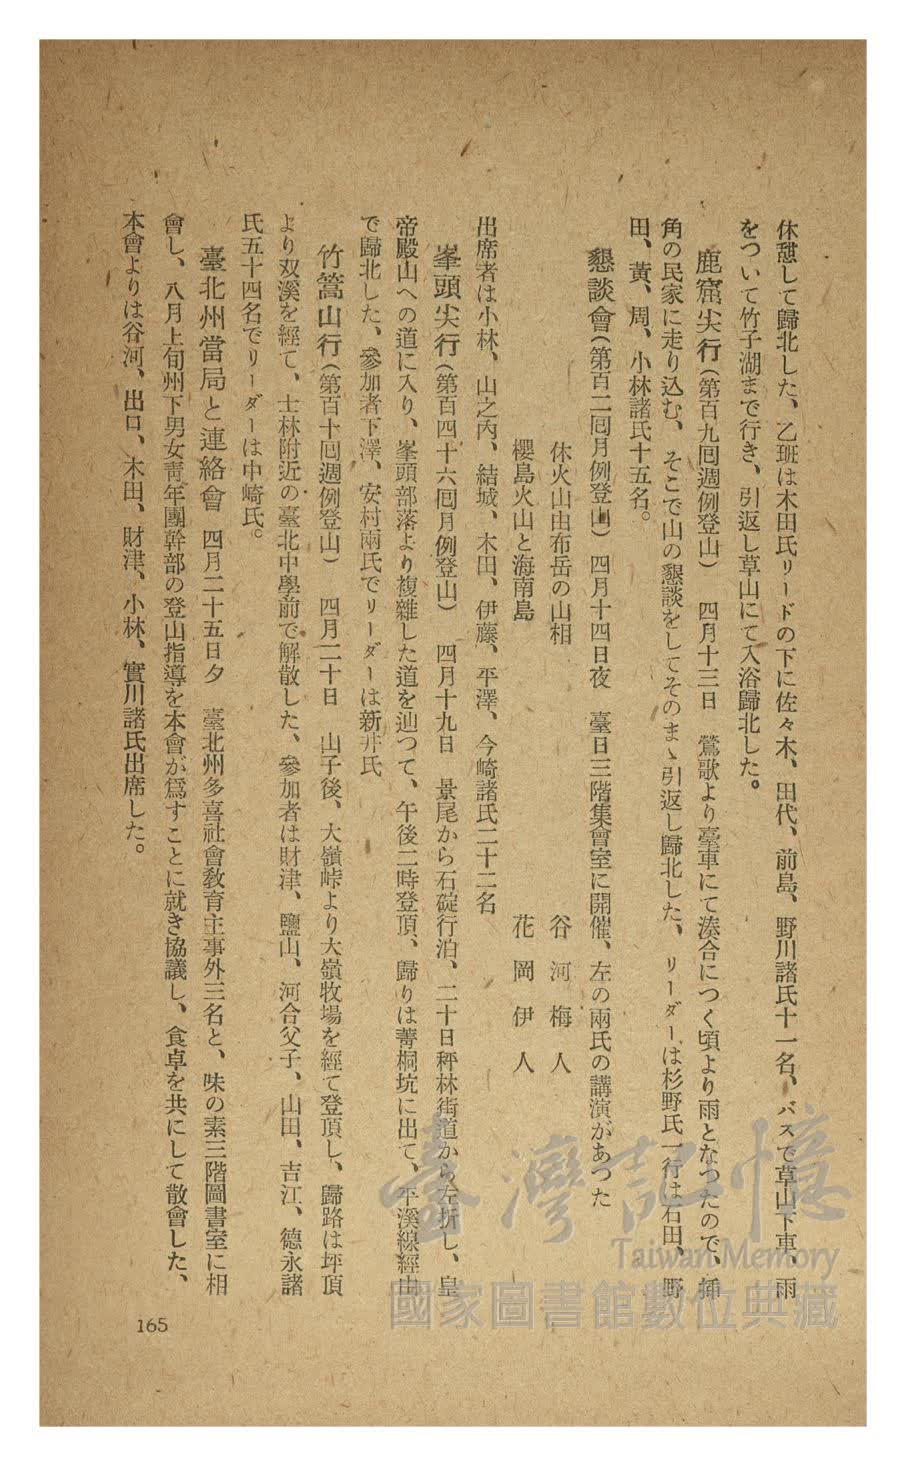 休憩して歸北した、乙班は木田氏リードの下に佐々木、田代、前島、野川諸氏十一名、バスで草山下車、雨
をついて竹子湖まで行き、引返し草山にて入浴歸北した。
鹿窟尖行（第百九囘週例登山） 四月十三日 鶯歌より臺車にて湊合につく頃より雨となつたので、挿
角の民家に走り込む、そこで山の懇談をしてそのまゝ引返し歸北した、リーダーは杉野氏一行は石田、野
田、黃、周、小林諸氏十五名。
懇談會（第百二囘月例登山） 四月十四日夜 臺日三階集會室に開催、左の兩氏の講演があつた
休火山由布岳の山相 谷河梅人
櫻島火山と海南島 花岡伊人
出席者は小林、山之內、結城、木田、伊藤、平澤、今崎諸氏二十二名
峯頭尖行（第百四十六囘月例登山） 四月十九日 景尾から石碇行泊、二十日秤林街道から左折し、皇
帝殿山への道に入り、峯頭部落より複雜した道を辿つて、午後二時登頂、歸りは菁桐坑に出て、平溪線經由
で歸北した、參加者下澤、安村兩氏でリーダーは新井氏
竹篙山行（第百十囘週例登山） 四月二十日 山子後、大嶺峠より大嶺牧場を經て登頂し、歸路は坪頂
より双溪を經て、士林附近の臺北中學前で解散した、參加者は財津、鹽山、河合父子、山田、吉江、德永諸
氏五十四名でリーダーは中崎氏。
臺北州當局と連絡會 四月二十五日夕 臺北州多喜社會敎育主事外三名と、味の素三階圖書室に相
會し、八月上旬州下男女靑年團幹部の登山指導を本會が爲すことに就き協議し、食卓を共にして散會した、
本會よりは谷河、出口、木田、財津、小林、實川諸氏出席した。
165
臺灣記憶
Taiwan Memory
國家圖書館數位典藏